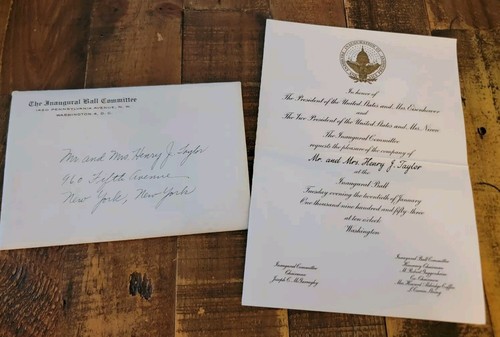 The Inaugural Ball Committee
1420 PENNSYLVANIA AVENUE, N. W.
WASHINGTON 5, D. C.
Mr and Mrs Henry J. Taylor
960 Fifth Avenue
New York, New York
In honor of
The President of the United States and Mrs. Eisenhower
and
The Vice President of the United States and Mrs. Nixon
The Inaugural Committee
requests the pleasure of the company of
Mr. and Mrs. Henry J. Taylor
at the
Inaugural Ball
Tuesday evening the twentieth of January
One thousand nine hundred and fifty-three
at ten o'clock
Washington
Inaugural Committee
Chairman
Joseph C. McGarraghy
Inaugural Ball Committee
Honorary Chairman
M. Robert Guggenheim
Co-Chairmen